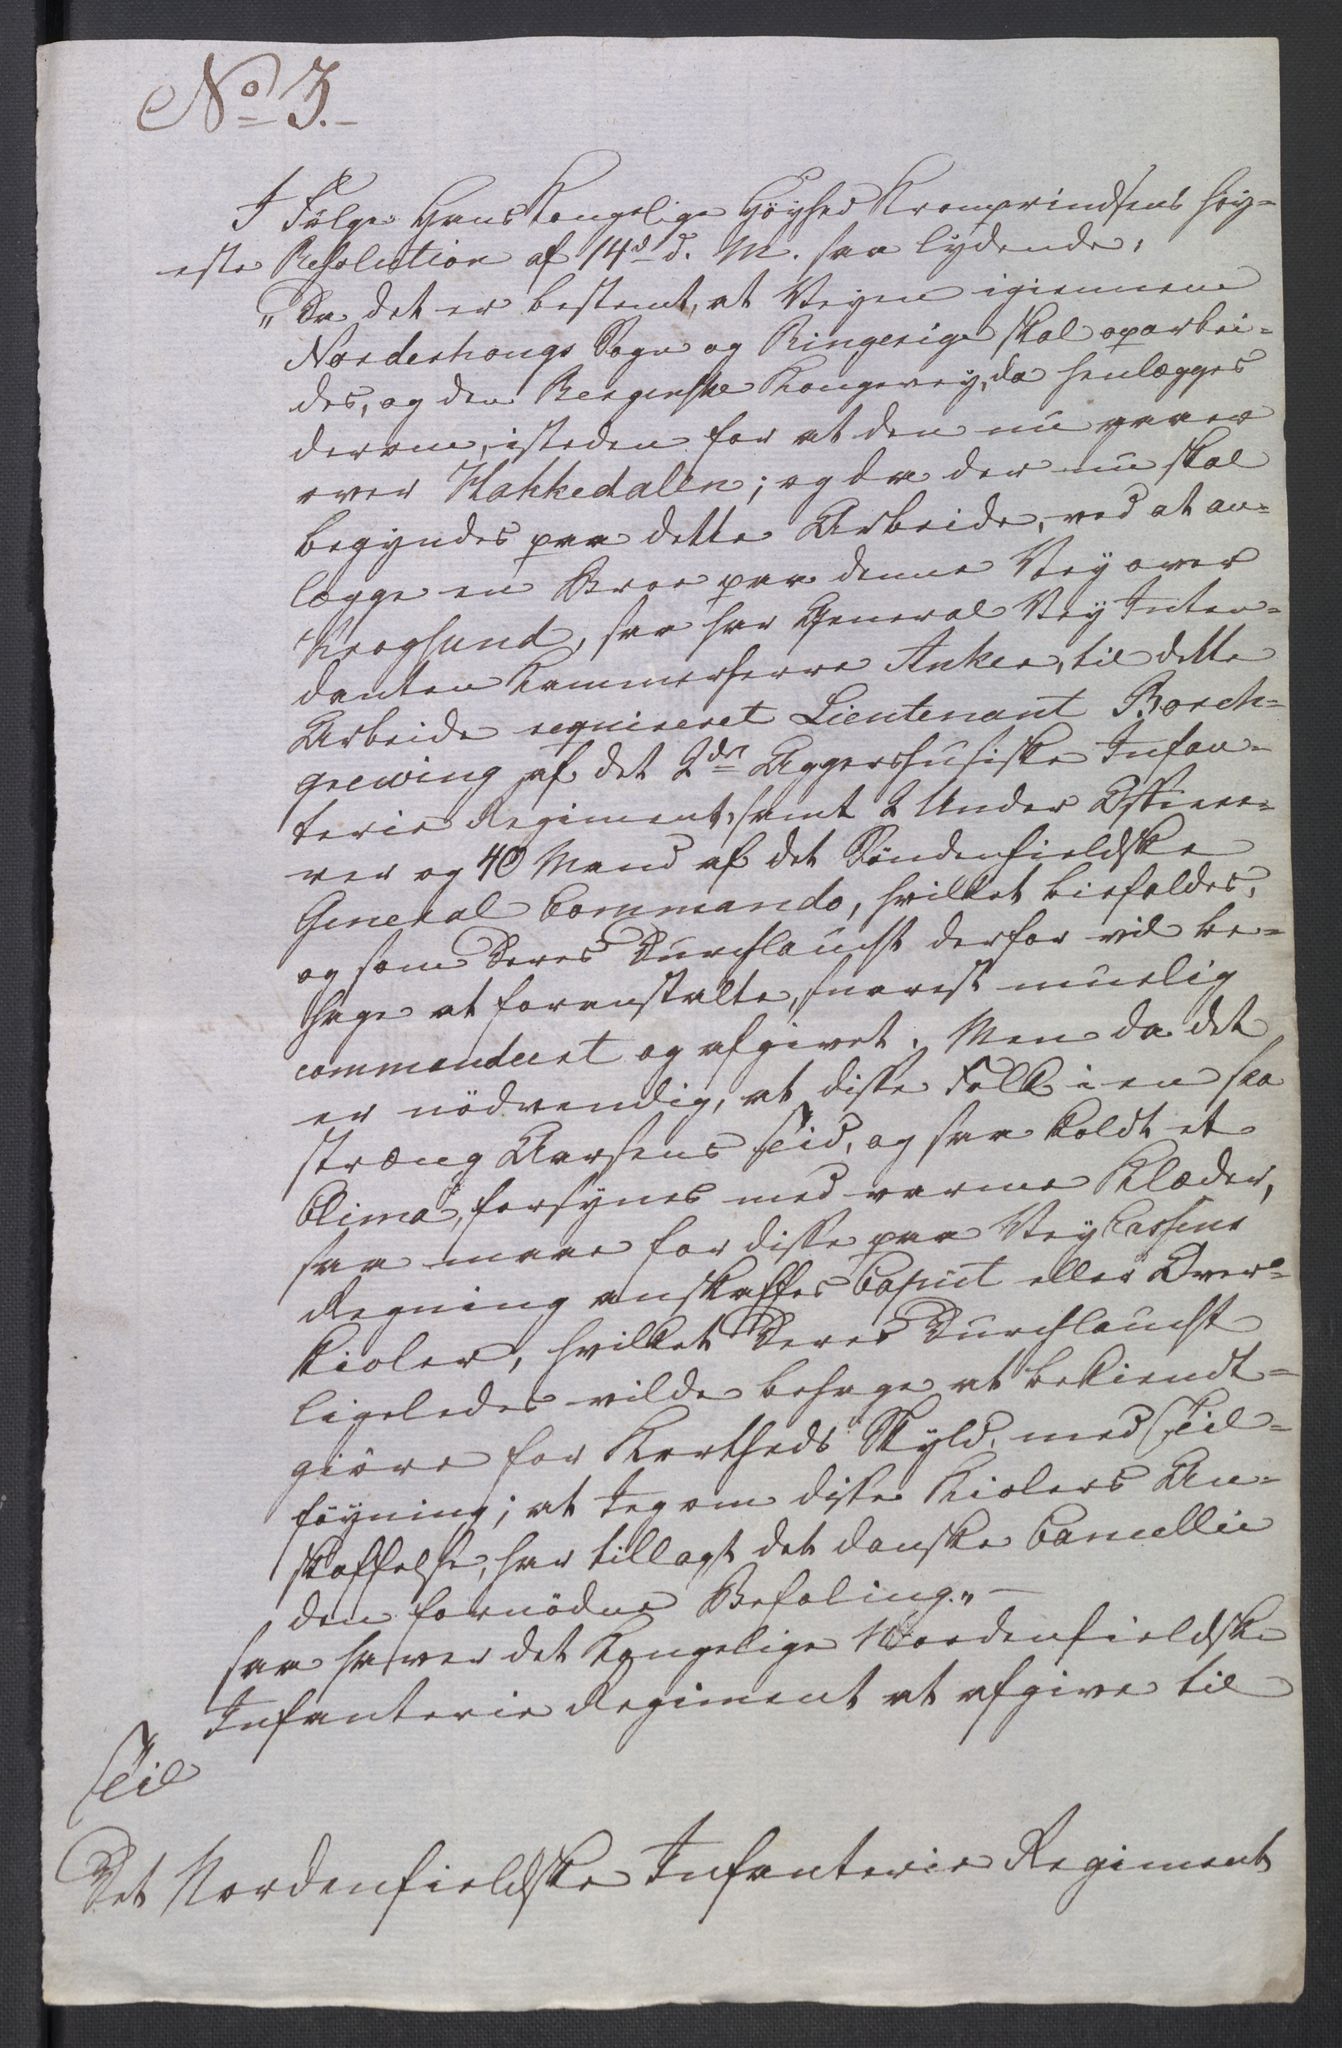 No 3.
I Følge Hans Kongelige Høyhed Kronprindsens høy-
este Resolution af 14d d. M. saa lydende:
"Da det er bestemt, at Veyen igiennem
Norderhougs Sogn og Ringerige skal oparbei-
des, og den Bergenske Kongevey, da henlægges
derom, isteden for at den nu gaaer
over Hakkedalen; og da der nu skal
begyndes paa dette Arbeide, ved at an-
lægge en Broe paa denne Vey over
Krogsund, saa har General Vey Inten-
danten Kammerherre Anker, til dette
Arbeide requireret Lieutenant Borch-
grewing af det 2det Aggershusiske Infan-
terie Regiment, samt 2 Under Officee-
rer og 40 Mand af det Søndenfieldske
General Commando, hvilket biefaldes,
og som Deres Durchlaucht derfor vil be-
hage at foranstalte, snarest muelig
commanderet og afgivet. Men da det
er nödvendig, at disse Folk i en saa
stræng Aarsens Tid, og saa koldt et
Clima, forsynes med varme Klæder,
saa maae for disse paa Vey Cassens
Regning anskaffes Caput eller Over-
Kioler, hvilket Deres Durchlaucht
ligeledes vilde behage at bekiendt-
giöre for Kortheds Skyld, med Til-
föyning; at Jeg om disse Kiolers An-
skaffelse, har tillagt det danske Cancellie
den fornödne Befaling." —
saa haver det Kongelige Nordenfieldske
Infanterie Regiment at afgive til
Til
Det Nordenfieldske Infanterie Regiment